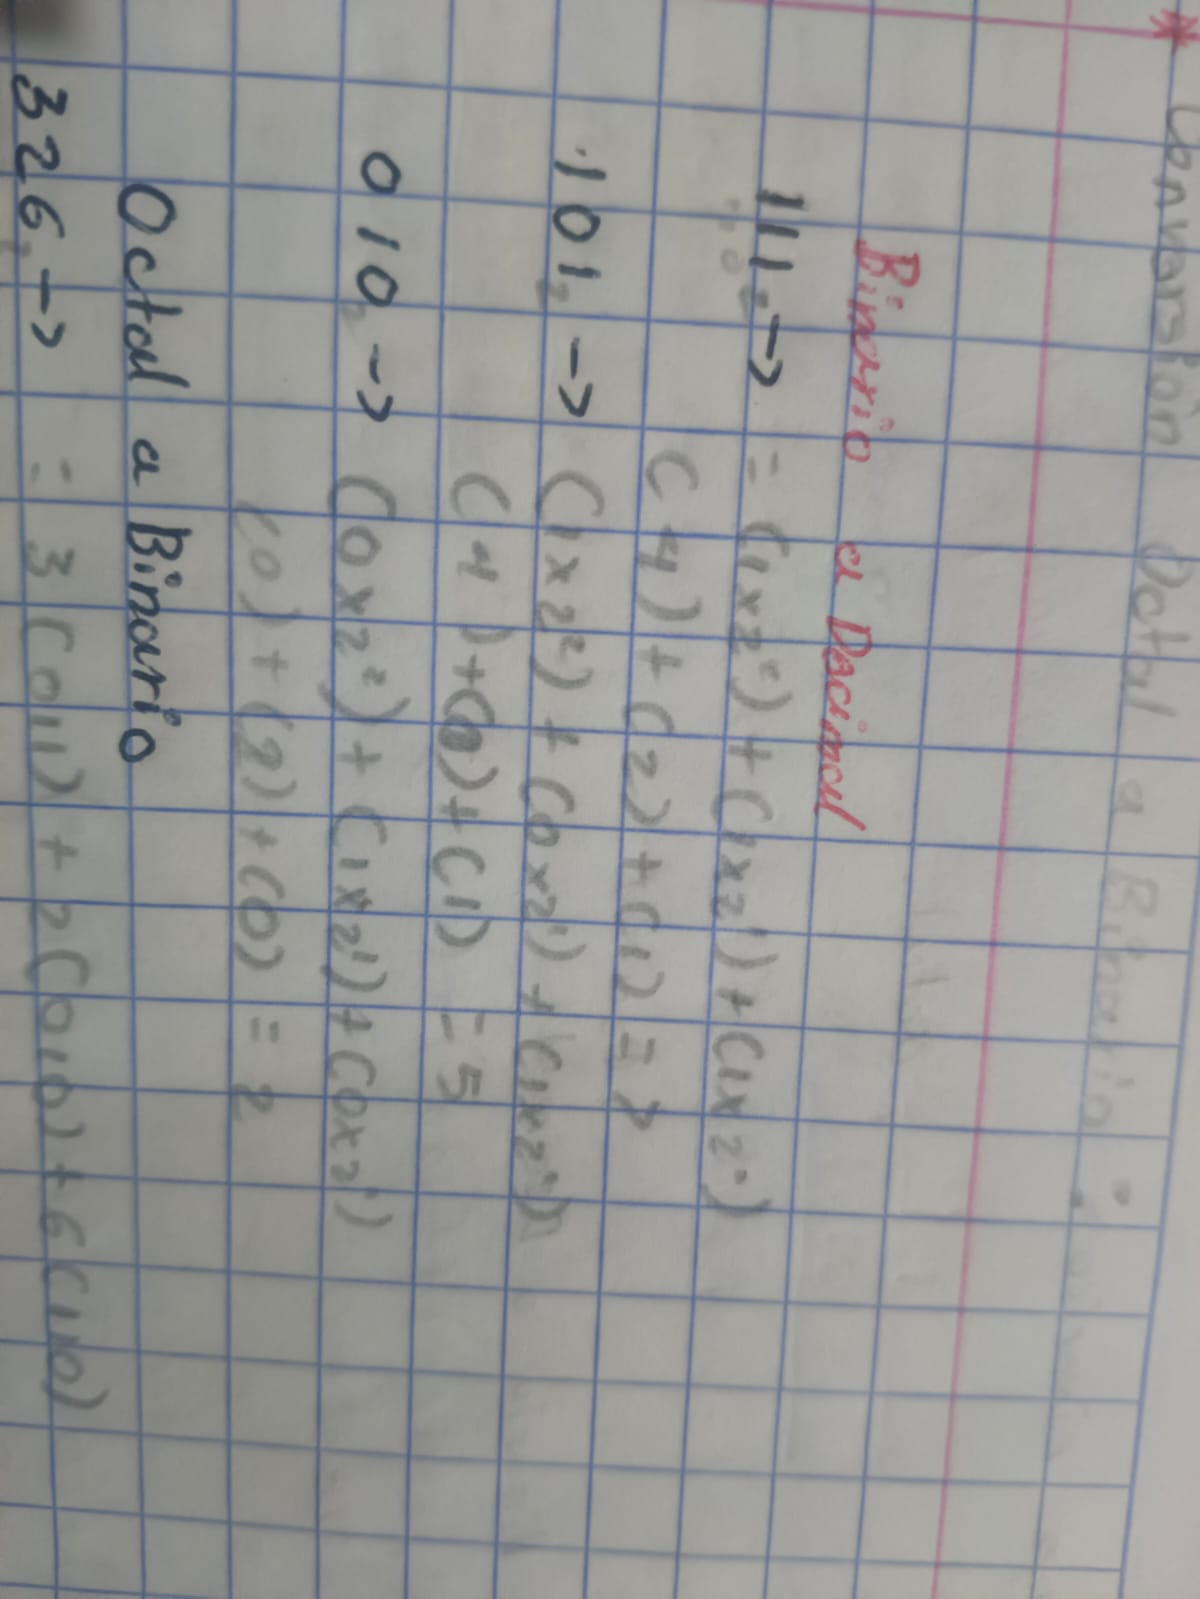 * Conversión Octal a Binario :
Binario a Decimal
111₂ → = (1x2²) + (1x2¹) + (1x2⁰)
(4) + (2) + (1) = 7
101₂ → (1x2²) + (0x2¹) + (1x2⁰)
(4) + (0) + (1) = 5
010₂ → (0x2²) + (1x2¹) + (0x2¹)
(0) + (2) + (0) = 2
Octal a Binario
326 → = 3(011) + 2(010) + 6(110)